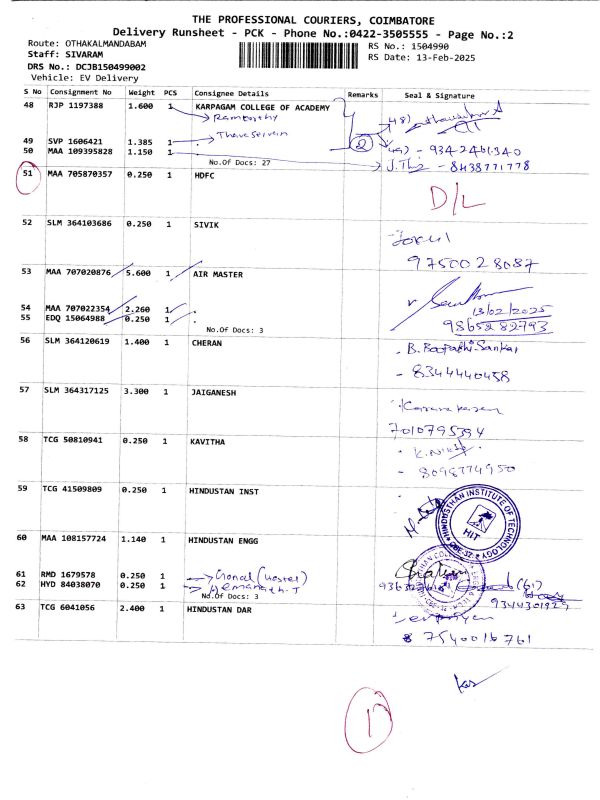 THE PROFESSIONAL COURIERS, COIMBATORE
Delivery Runsheet - PCK - Phone No.:0422-3505555 - Page No.:2
Route: OTHAKALMANDABAM
Staff: SIVARAM
DRS No.: DCJB150499002
Vehicle: EV Delivery
RS No.: 1504990
RS Date: 13-Feb-2025
S No Consignment No Weight PCS Consignee Details Remarks Seal & Signature
48 RJP 1197388 1.600 1 KARPAGAM COLLEGE OF ACADEMY
48)
49 SVP 1606421 1.385 1
50 MAA 109395828 1.150 1
2
49) - 9342461340
No.Of Docs: 27
- 8438771778
51 MAA 705870357 0.250 1 HDFC
D/L
52 SLM 364103686 0.250 1 SIVIK
9750028087
53 MAA 707020876 5.600 1 AIR MASTER
54 MAA 707022354 2.260 1 .
13/02/2025
55 EDQ 15064988 0.250 1 .
9865282793
No.Of Docs: 3
56 SLM 364120619 1.400 1 CHERAN
- 8344440458
57 SLM 364317125 3.300 1 JAIGANESH
7010795394
58 TCG 50810941 0.250 1 KAVITHA
- 8098774950
59 TCG 41509809 0.250 1 HINDUSTAN INST
HINDUSTHAN INSTITUTE OF TECHNOLOGY
HIT
CBE-32
60 MAA 108157724 1.140 1 HINDUSTAN ENGG
61 RMD 1679578 0.250 1
(61)
62 HYD 84038070 0.250 1
9344301929
No.Of Docs: 3
63 TCG 6041056 2.400 1 HINDUSTAN DAR
7540016761